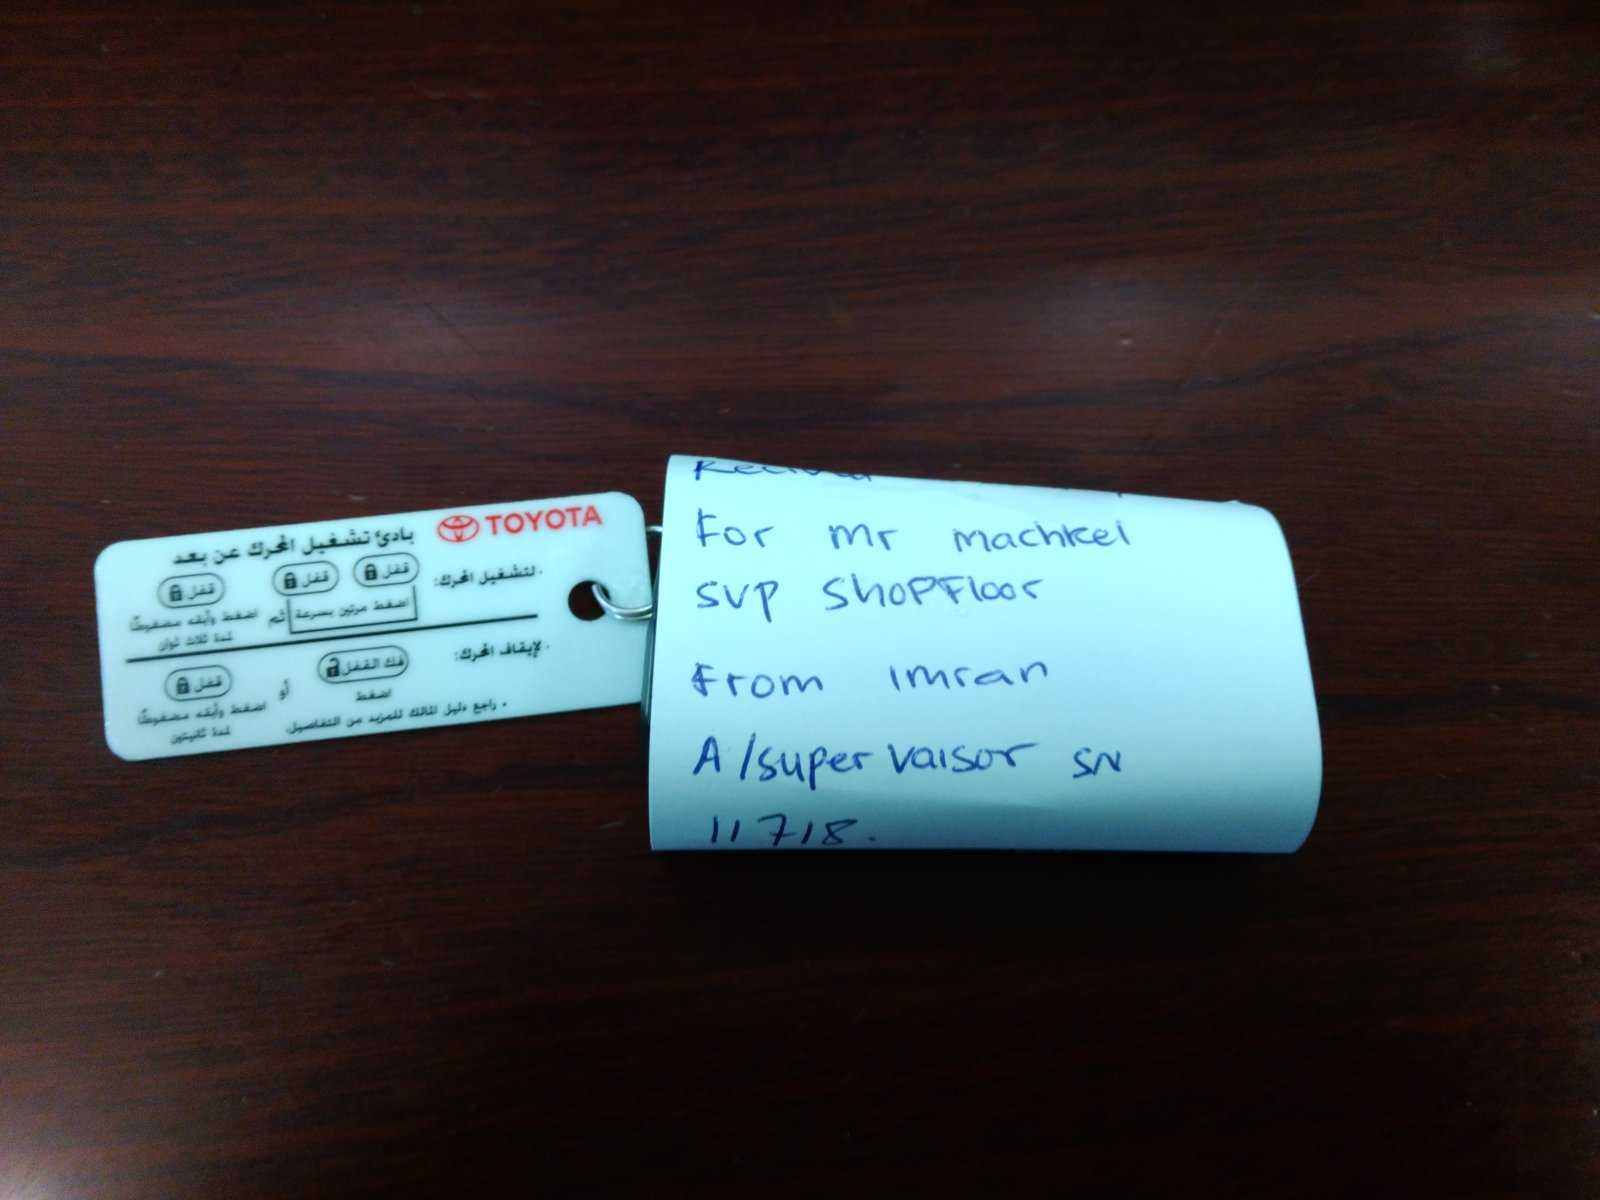 TOYOTA
بادئ تشغيل المحرك عن بعد
· لتشغيل المحرك:
قفل
قفل
قفل
اضغط مرتين بسرعة
ثم
اضغط وأبقه مضغوطًا
لمدة ثلاث ثوان
· لإيقاف المحرك:
فك القفل
أو
قفل
اضغط
اضغط وأبقه مضغوطًا
لمدة ثانيتين
· راجع دليل المالك للمزيد من التفاصيل.
For Mr machkel
SVP ShopFloor
From imran
A/super vaisor SN
11718.